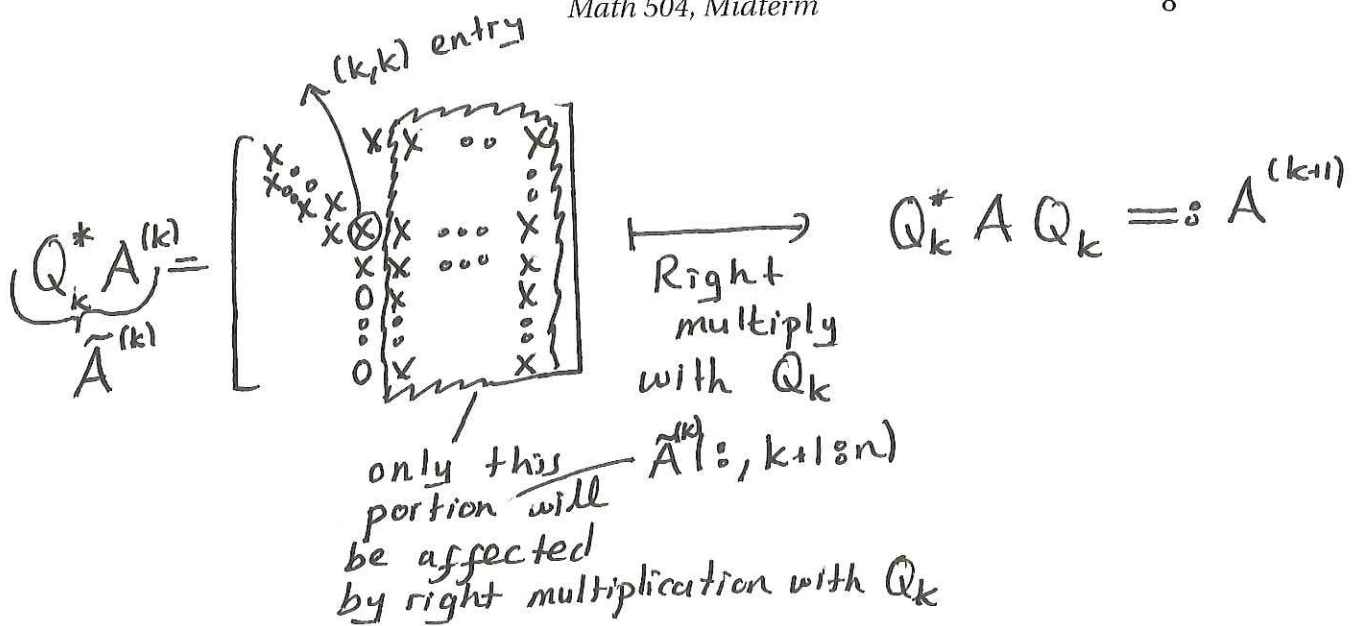 Math 504, Midterm 8
(k,k) entry
Q_k^* A^{(k)} =
Ã^{(k)}
X X X oo X
X X X
X X X ooo X
X X ooo X
O X X
O X X
Right
multiply
with Q_k
Q_k^* A Q_k =: A^{(k+1)}
only this
portion will
be affected
by right multiplication with Q_k
Ã^{(k)}(:, k+1:n)